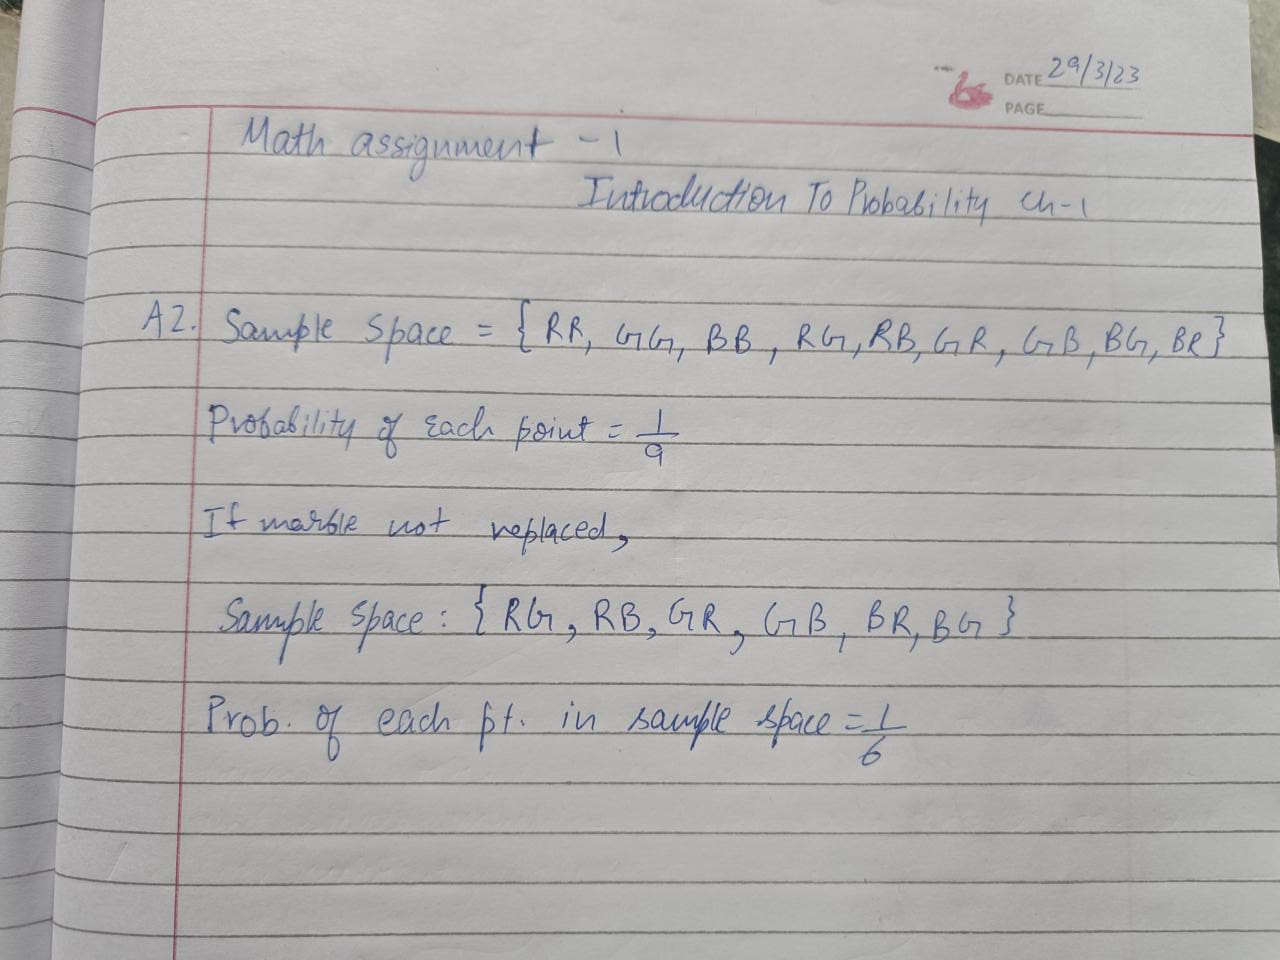 DATE 29/3/23
PAGE
Math assignment - 1
Introduction To Probability Ch-1
A2. Sample Space = { RR, GG, BB, RG, RB, GR, GB, BG, BR}
Probability of each point = 1/9
If marble not replaced,
Sample space : { RG, RB, GR, GB, BR, BG }
Prob. of each pt. in sample space = 1/6